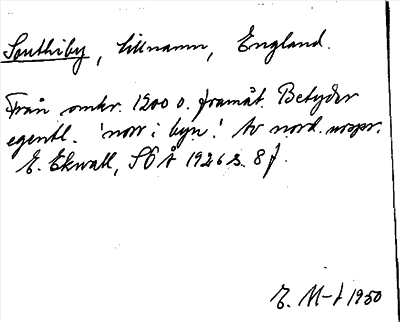 Southiby, tillnamn, England.
Från omkr. 1200 o. framåt. Betyder
egentl. 'norr i byn'. Av nord. urspr.
E. Ekwall, SOÅ 1926 s. 8 f.
E. M-t 1950